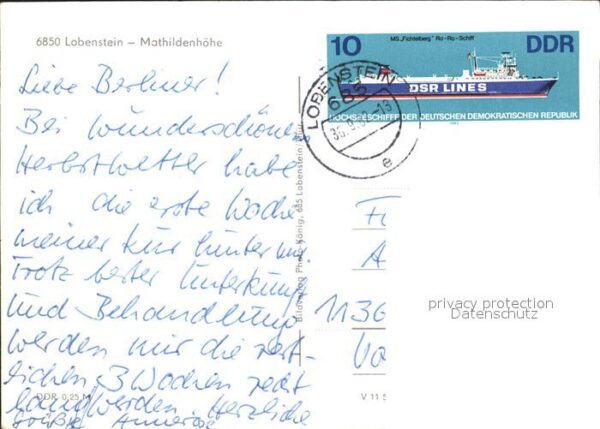 6850 Lobenstein – Mathildenhöhe
10 MS „Fichtelberg" Ro-Ro-Schiff DDR
DSR LINES
HOCHSEESCHIFFE DER DEUTSCHEN DEMOKRATISCHEN REPUBLIK
LOBENSTEIN
685
e
Liebe Berliner!
Bei wunderschönem
Herbstwetter habe
ich die erste Woche
meiner Kur hinter mir.
Trotz bester Unterkunft
und Behandlung
werden mir die rest-
lichen 3 Wochen recht
lang werden. Herzliche
Grüße Annerose
Bildverlag Photo-König, 685 Lobenstein/Thür.
1136
privacy protection
Datenschutz
DDR 0,25 M
V 11 5